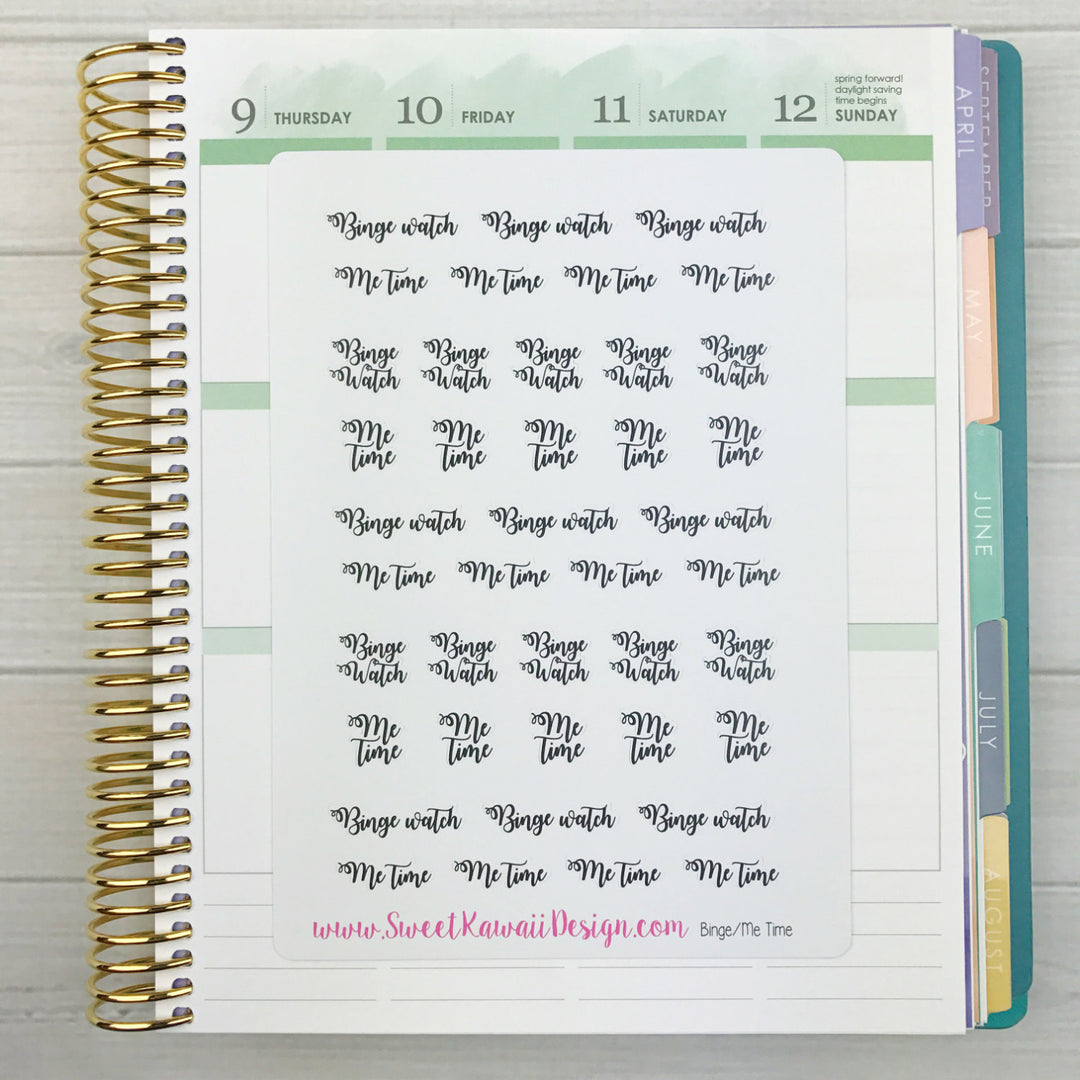 spring forward!
daylight saving
time begins
9 THURSDAY 10 FRIDAY 11 SATURDAY 12 SUNDAY
Binge watch Binge watch Binge watch
Me Time Me Time Me Time Me Time
Binge Binge Binge Binge Binge
Watch Watch Watch Watch Watch
Me Me Me Me Me
Time Time Time Time Time
Binge watch Binge watch Binge watch
Me Time Me Time Me Time Me Time
Binge Binge Binge Binge Binge
Watch Watch Watch Watch Watch
Me Me Me Me Me
Time Time Time Time Time
Binge watch Binge watch Binge watch
Me Time Me Time Me Time Me Time
www.SweetKawaiiDesign.com Binge/Me Time
SEPTEMBER
APRIL
MAY
JUNE
JULY
AUGUST